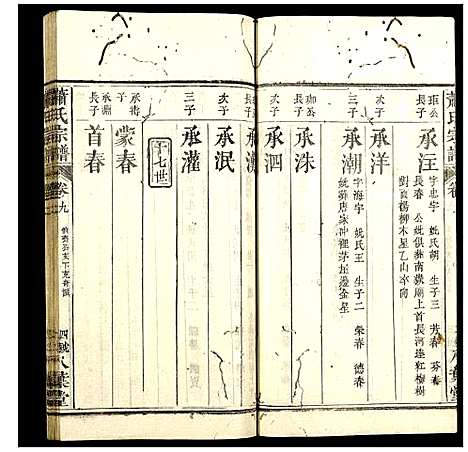 蕭氏宗譜
珀公
長子
承汪
字忠宇 妣氏胡 生子三 芳春 芬春
長春 公妣俱葬南嶽廟上首長河邊紅柳樹
對⾯楊柳木星乙山辛向
次子
承洋
三子
承潮
字海宇 妣氏王 生子二 榮春 德春
妣葬唐家沖狸茅垃邊金星
珈公
長子
承洙
次子
承泗
長子
次子
承泯
三子
承灌
十七世
承禱
子
蒙春
承淵
長子
首春
蕭氏宗譜
卷九
四號
八葉堂